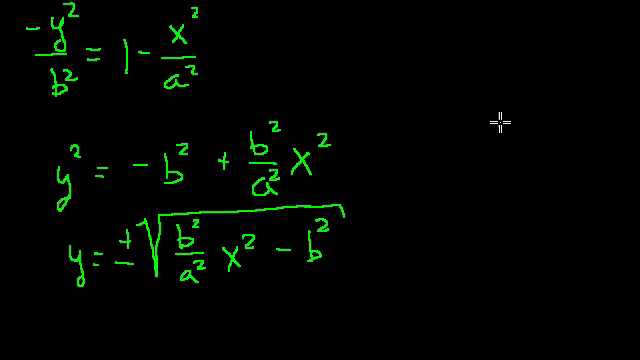 -y²/b² = 1 - x²/a²
y² = -b² + b²/a² x²
y = ±√(b²/a² x² - b²)